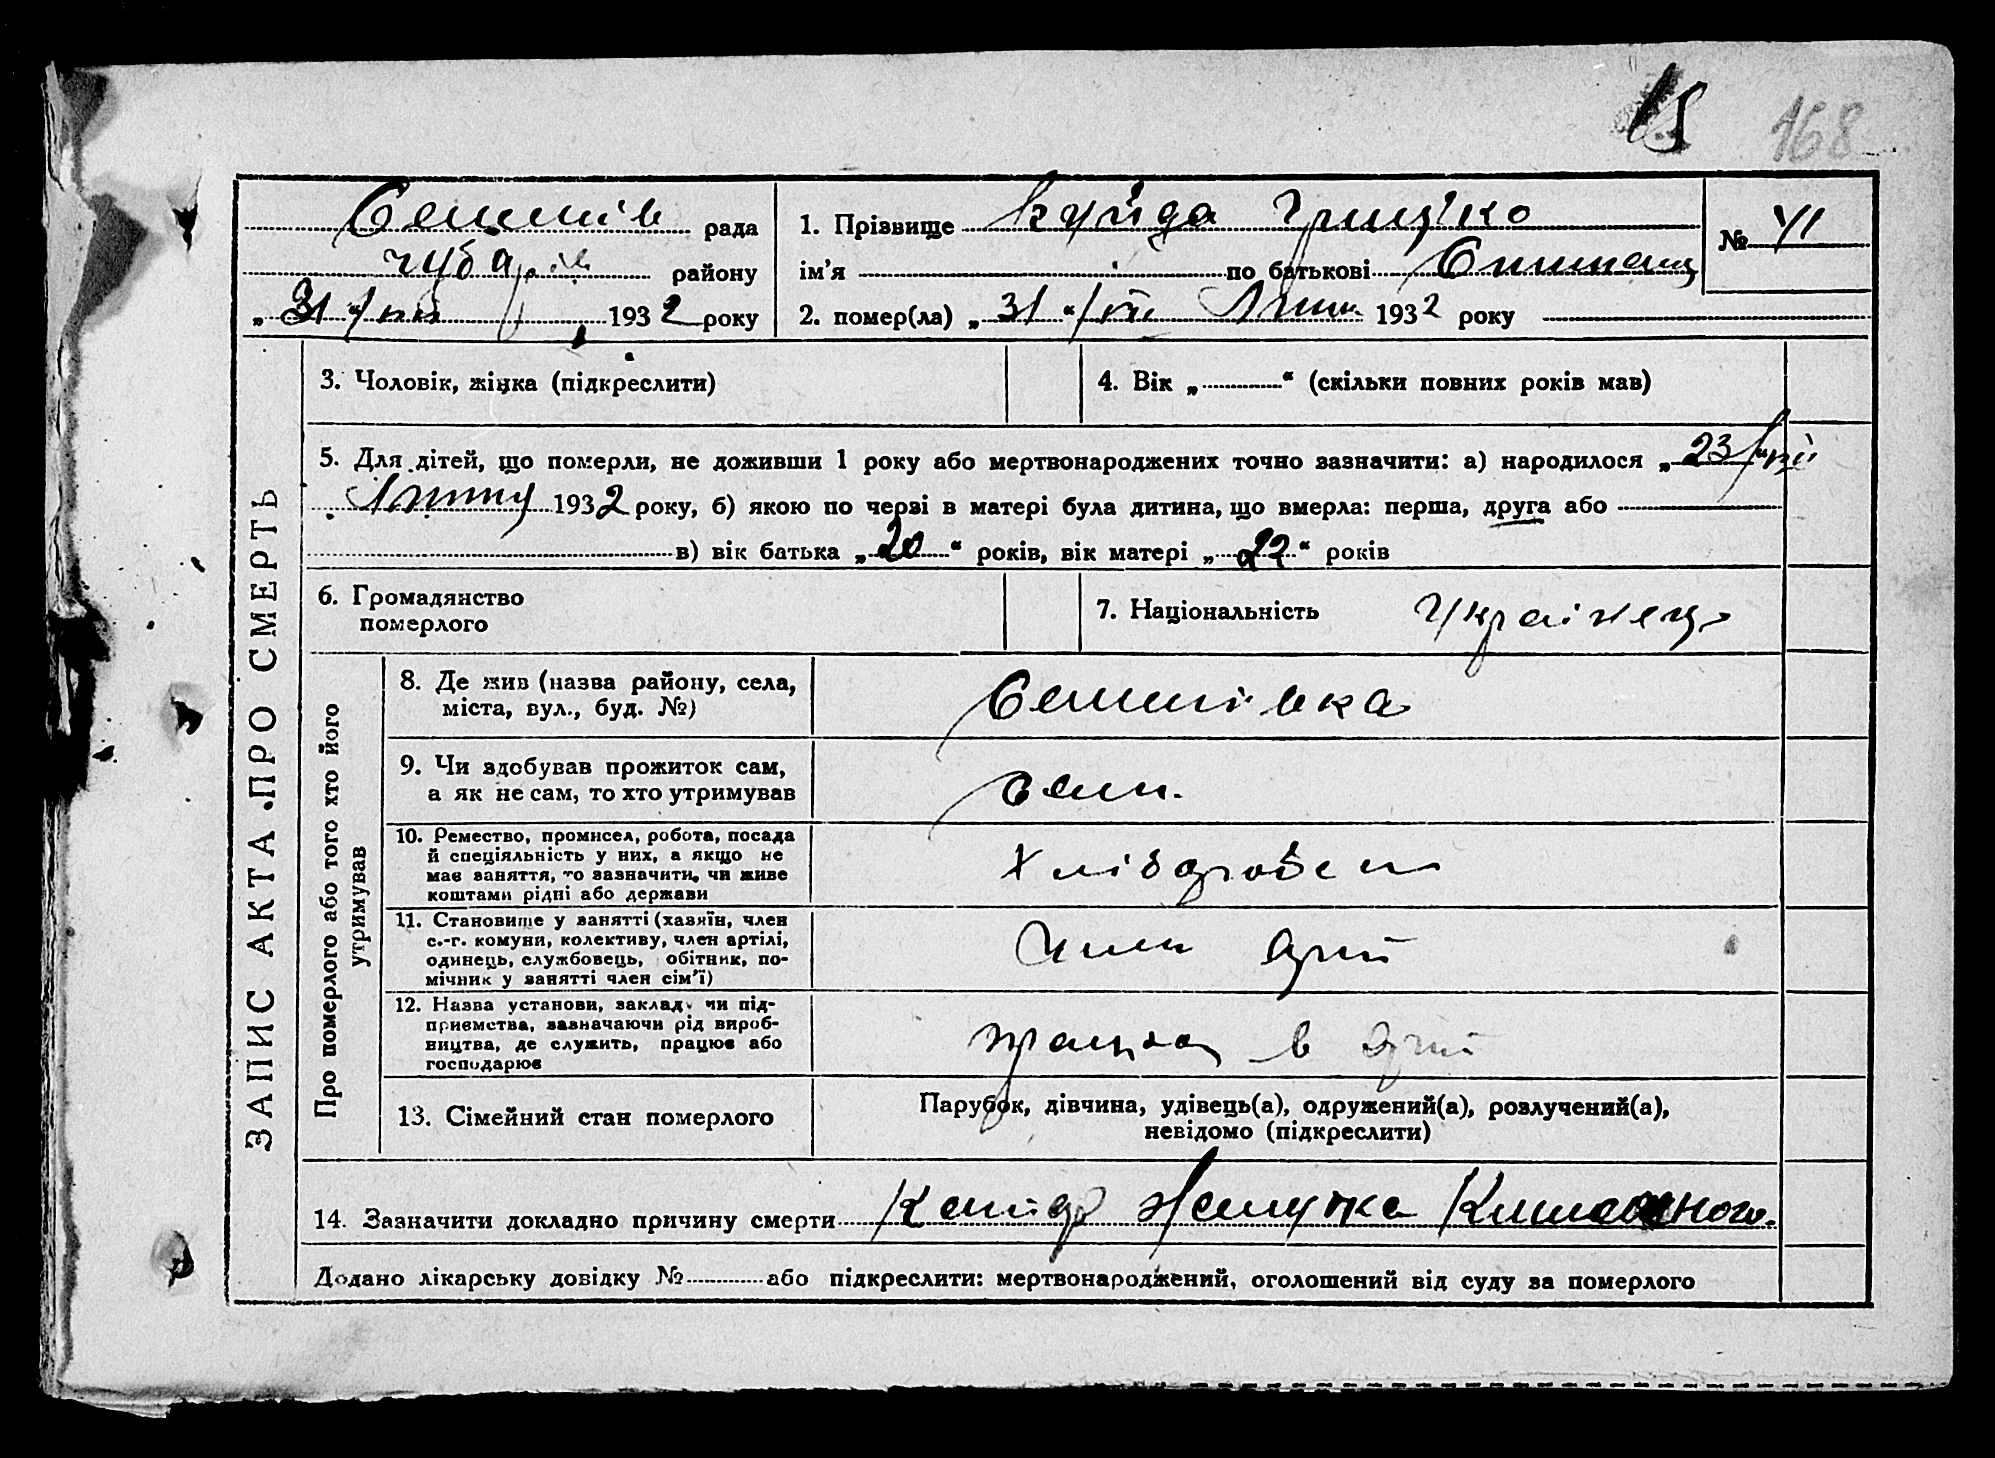 15 168
рада
району
„31“/VII 1932 року
1. Прізвище Куйда Грицько
ім'я по батькові
№ 41
2. помер(ла) „31“/VII 1932 року
ЗАПИС АКТА ПРО СМЕРТЬ
3. Чоловік, жінка (підкреслити)
4. Вік „ “ (скільки повних років мав)
5. Для дітей, що померли, не доживши 1 року або мертвонароджених точно зазначити: а) народилося „23“/VII
1932 року, б) якою по черзі в матері була дитина, що вмерла: перша, друга або
в) вік батька „20“ років, вік матері „22“ років
6. Громадянство
померлого
7. Національність Українець
Про померлого або того хто його
утримував
8. Де жив (назва району, села,
міста, вул., буд. №)
9. Чи здобував прожиток сам,
а як не сам, то хто утримував
10. Ремество, промисел, робота, посада
й спеціяльність у них, а якщо не
має заняття, то зазначити, чи живе
коштами рідні або держави
Хлібороб
11. Становище у занятті (хазяїн, член
с.-г. комуни, колективу, член артілі,
одинець, службовець, обітник, по-
мічник у занятті член сім'ї)
Член
12. Назва установи, заклад чи під-
приємства, зазначаючи рід вироб-
ництва, де служить, працює або
господарює
працює в
13. Сімейний стан померлого
Парубок, дівчина, удівець(а), одружений(а), розлучений(а),
невідомо (підкреслити)
14. Зазначити докладно причину смерти
Додано лікарську довідку № або підкреслити: мертвонароджений, оголошений від суду за померлого